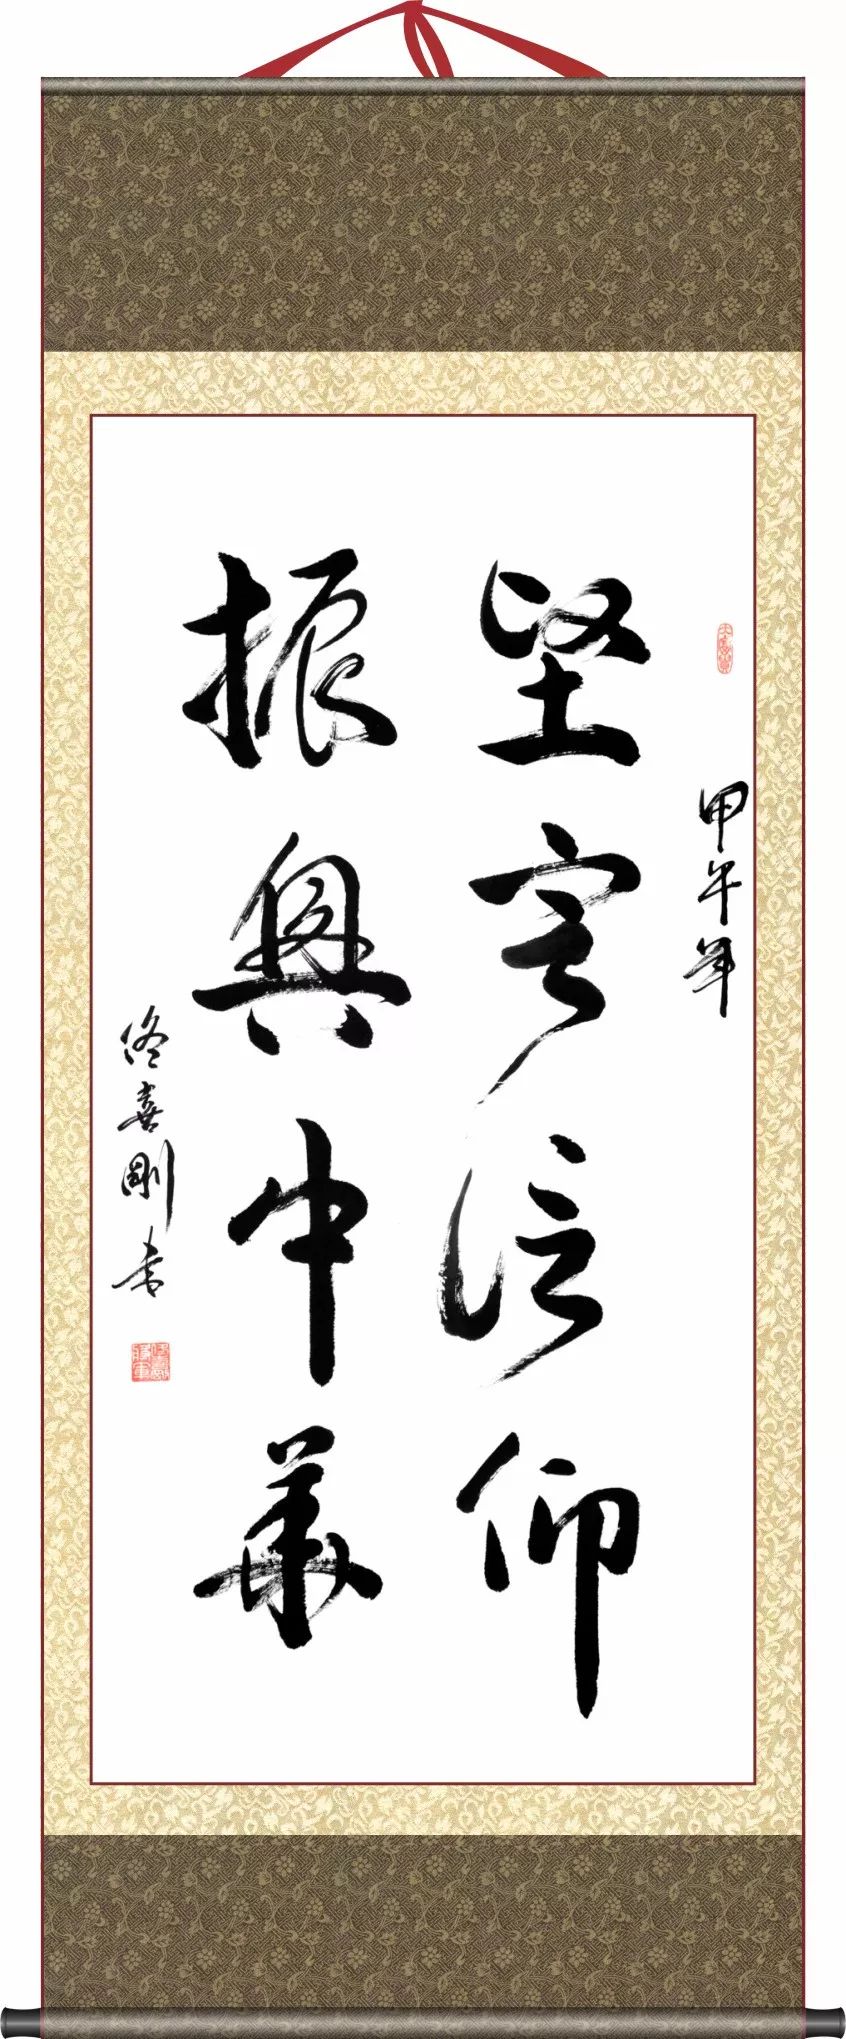 甲午年
坚守信仰
振兴中华
佟喜刚书